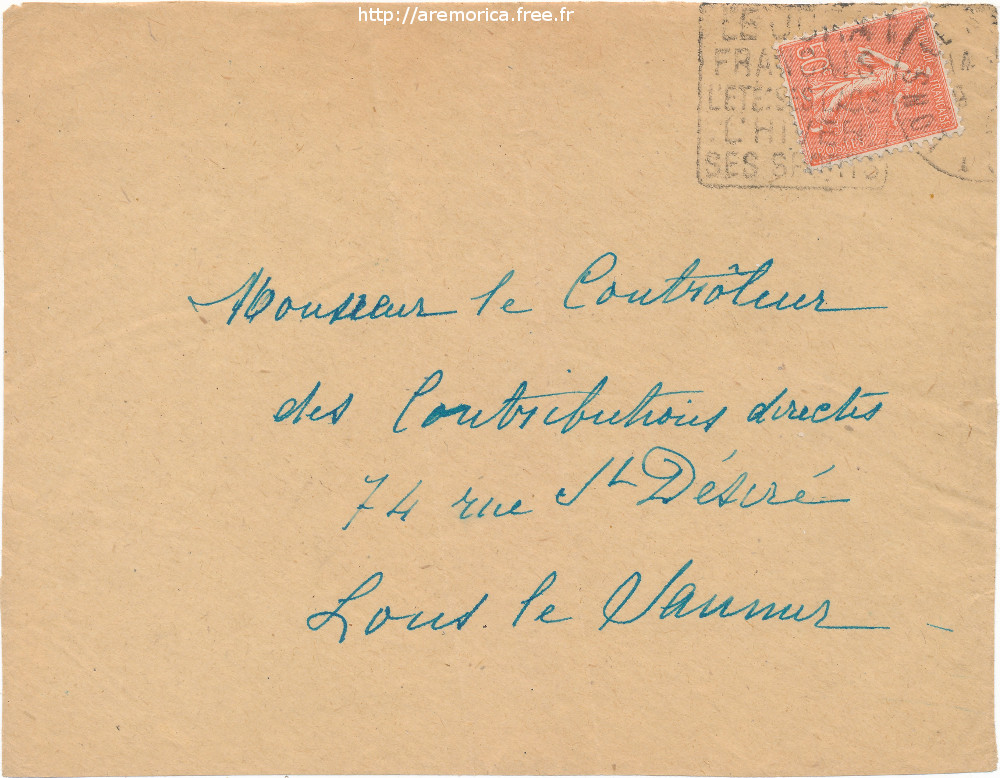 http://aremorica.free.fr
LE JURA
FRA
L'ETE: S
L'HI
SES SP TS
50
Monsieur le Contrôleur
des Contributions directes
74 rue St Désiré
Lons le Saunier